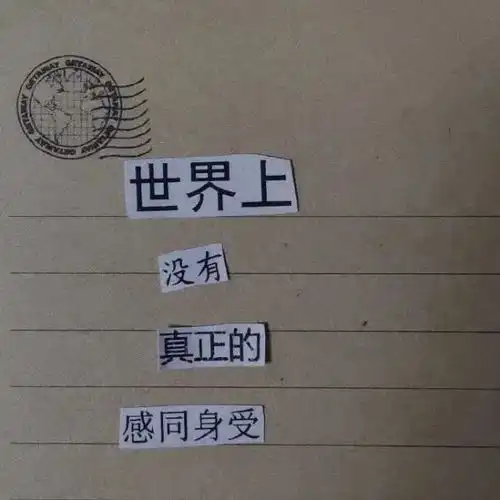 GETAWAY GETAWAY GETAWAY GETAWAY GETAWAY GETAWAY
世界上
没有
真正的
感同身受